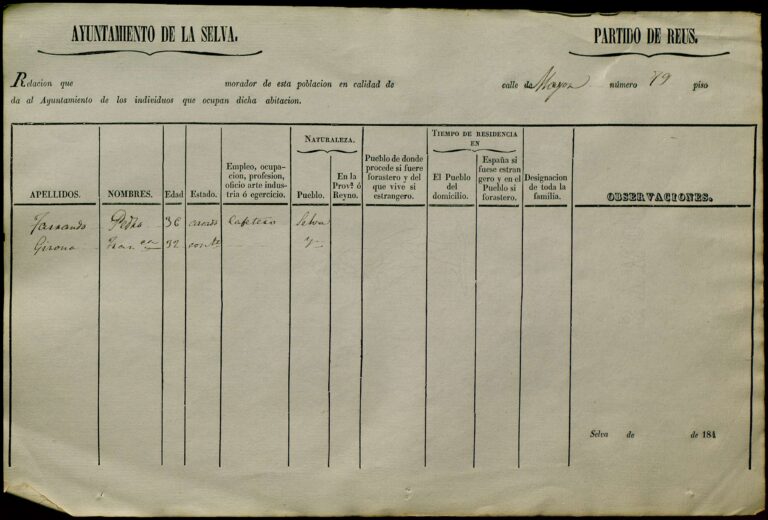 AYUNTAMIENTO DE LA SELVA.
PARTIDO DE REUS.
Relacion que morador de esta poblacion en calidad de calle de Mayor número 79 piso
da al Ayuntamiento de los individuos que ocupan dicha abitacion.
APELLIDOS.
NOMBRES.
Edad
Estado.
Empleo, ocupa-
cion, profesion,
oficio arte indus-
tria ó egercicio.
NATURALEZA.
Pueblo.
En la
Prov.ª ó
Reyno.
Pueblo de donde
procede si fuere
forastero y del
que vive si
estrangero.
TIEMPO DE RESIDENCIA
EN
El Pueblo
del
domicilio.
España si
fuese estran
gero y en el
Pueblo si
forastero.
Designacion
de toda la
familia.
OBSERVACIONES.
Pedro 36 casado Cafetero Selva
Girona Fran.ca 32 con.te
Selva de de 184